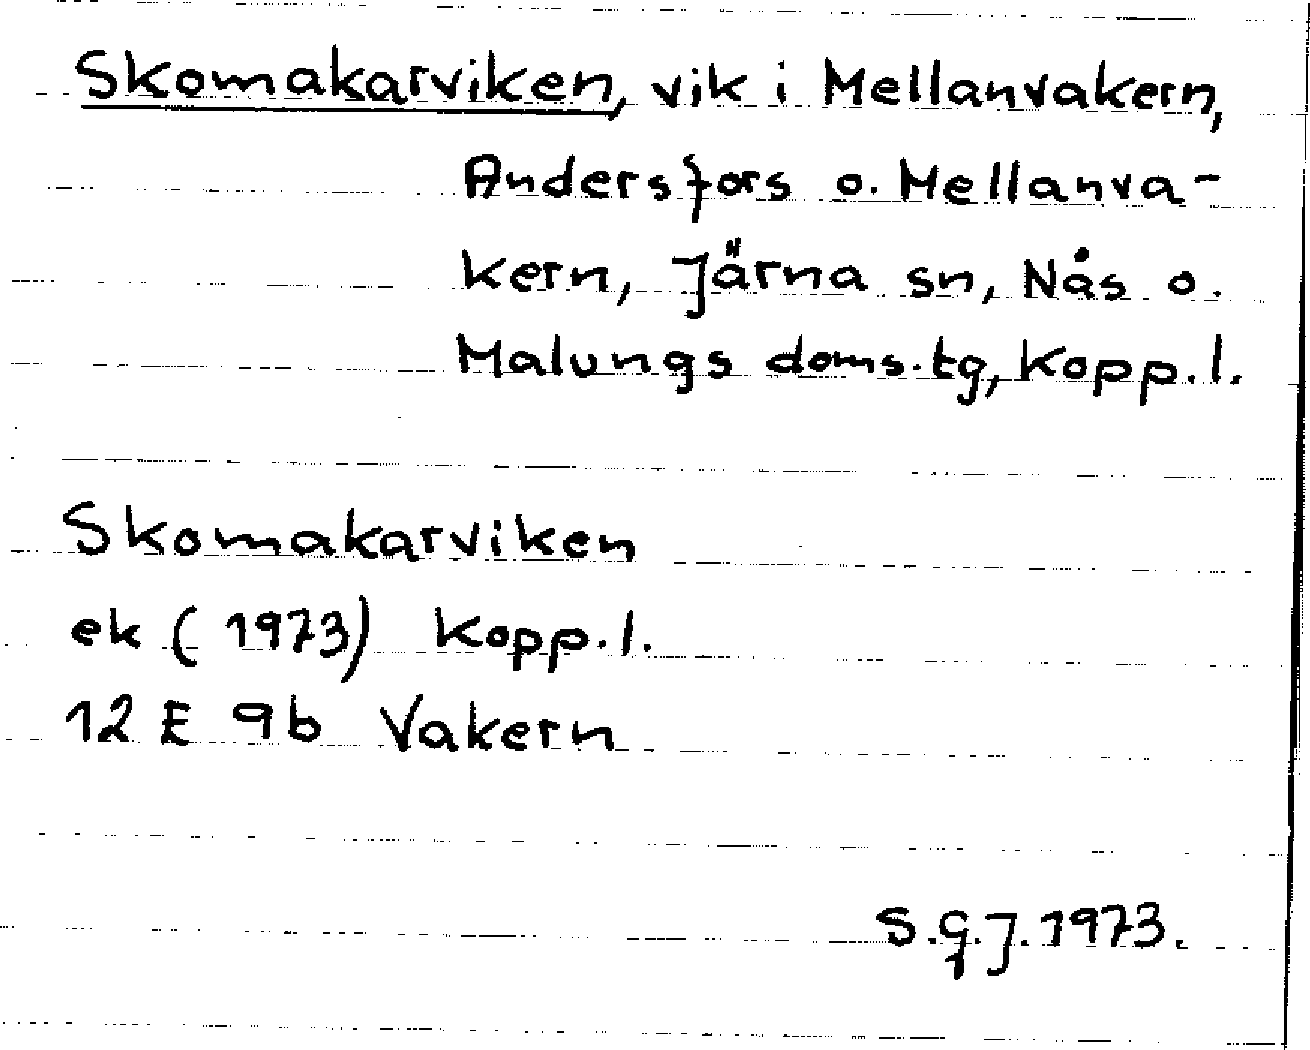 Skomakarviken, vik i Mellanvakern,
Andersfors o. Mellanva-
kern, Järna sn, Nås o.
Malungs doms.tg, Kopp.l.
Skomakarviken
ek (1973) Kopp.l.
12 E 9b Vakern
S.G.J. 1973.